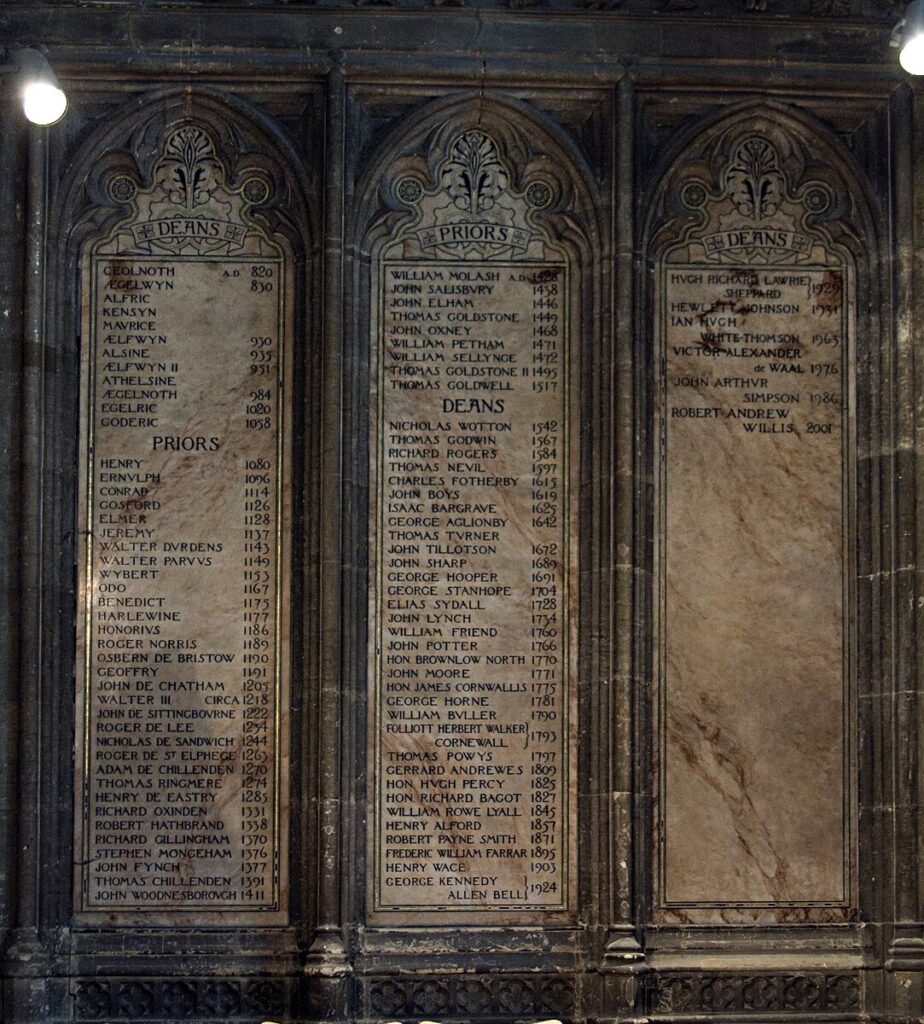 DEANS
CEOLNOTH A.D 820
ÆGELWYN 830
ALFRIC
KENSYN
MAVRICE
ÆLFWYN 930
ALSINE 935
ÆLFWYN II 951
ATHELSINE
ÆGELNOTH 984
EGELRIC 1020
GODERIC 1058
PRIORS
HENRY 1080
ERNVLPH 1096
CONRAD 1114
GOSFORD 1126
ELMER 1128
JEREMY 1137
WALTER DVRDENS 1143
WALTER PARVVS 1149
WYBERT 1153
ODO 1167
BENEDICT 1175
HARLEWINE 1177
HONORIVS 1186
ROGER NORRIS 1189
OSBERN DE BRISTOW 1190
GEOFFRY 1191
JOHN DE CHATHAM 1205
WALTER III CIRCA 1218
JOHN DE SITTINGBOVRNE 1222
ROGER DE LEE 1234
NICHOLAS DE SANDWICH 1244
ROGER DE ST ELPHEGE 1263
ADAM DE CHILLENDEN 1270
THOMAS RINGMERE 1274
HENRY DE EASTRY 1285
RICHARD OXINDEN 1331
ROBERT HATHBRAND 1338
RICHARD GILLINGHAM 1370
STEPHEN MONGEHAM 1376
JOHN FYNCH 1377
THOMAS CHILLENDEN 1391
JOHN WOODNESBOROVGH 1411
PRIORS
WILLIAM MOLASH A.D. 1428
JOHN SALISBVRY 1438
JOHN ELHAM 1446
THOMAS GOLDSTONE 1449
JOHN OXNEY 1468
WILLIAM PETHAM 1471
WILLIAM SELLYNGE 1472
THOMAS GOLDSTONE II 1495
THOMAS GOLDWELL 1517
DEANS
NICHOLAS WOTTON 1542
THOMAS GODWIN 1567
RICHARD ROGERS 1584
THOMAS NEVIL 1597
CHARLES FOTHERBY 1615
JOHN BOYS 1619
ISAAC BARGRAVE 1625
GEORGE AGLIONBY 1642
THOMAS TVRNER
JOHN TILLOTSON 1672
JOHN SHARP 1689
GEORGE HOOPER 1691
GEORGE STANHOPE 1704
ELIAS SYDALL 1728
JOHN LYNCH 1734
WILLIAM FRIEND 1760
JOHN POTTER 1766
HON. BROWNLOW NORTH 1770
JOHN MOORE 1771
HON. JAMES CORNWALLIS 1775
GEORGE HORNE 1781
WILLIAM BVLLER 1790
FOLLIOTT HERBERT WALKER
CORNEWALL } 1793
THOMAS POWYS 1797
GERRARD ANDREWES 1809
HON. HVGH PERCY 1825
HON. RICHARD BAGOT 1827
WILLIAM ROWE LYALL 1845
HENRY ALFORD 1857
ROBERT PAYNE SMITH 1871
FREDERIC WILLIAM FARRAR 1895
HENRY WACE 1903
GEORGE KENNEDY
ALLEN BELL } 1924
DEANS
HVGH RICHARD LAWRIE
SHEPPARD } 1929
HEWLETT JOHNSON 1931
IAN HVGH
WHITE-THOMSON 1963
VICTOR ALEXANDER
de WAAL 1976
JOHN ARTHVR
SIMPSON 1986
ROBERT ANDREW
WILLIS 2001